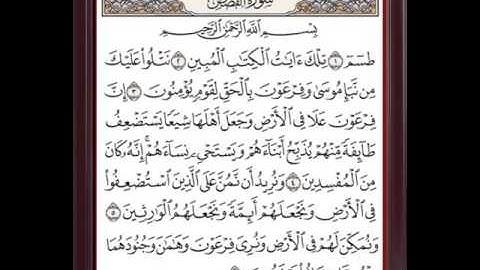 سورة القصص
بِسْمِ ٱللَّهِ ٱلرَّحْمَٰنِ ٱلرَّحِيمِ
طسٓمٓ ۝١ تِلْكَ ءَايَٰتُ ٱلْكِتَٰبِ ٱلْمُبِينِ ۝٢ نَتْلُوا۟ عَلَيْكَ
مِن نَّبَإِ مُوسَىٰ وَفِرْعَوْنَ بِٱلْحَقِّ لِقَوْمٍ يُؤْمِنُونَ ۝٣ إِنَّ
فِرْعَوْنَ عَلَا فِى ٱلْأَرْضِ وَجَعَلَ أَهْلَهَا شِيَعًا يَسْتَضْعِفُ
طَآئِفَةً مِّنْهُمْ يُذَبِّحُ أَبْنَآءَهُمْ وَيَسْتَحْىِۦ نِسَآءَهُمْ ۚ إِنَّهُۥ كَانَ
مِنَ ٱلْمُفْسِدِينَ ۝٤ وَنُرِيدُ أَن نَّمُنَّ عَلَى ٱلَّذِينَ ٱسْتُضْعِفُوا۟
فِى ٱلْأَرْضِ وَنَجْعَلَهُمْ أَئِمَّةً وَنَجْعَلَهُمُ ٱلْوَٰرِثِينَ ۝٥
وَنُمَكِّنَ لَهُمْ فِى ٱلْأَرْضِ وَنُرِىَ فِرْعَوْنَ وَهَٰمَٰنَ وَجُنُودَهُمَا